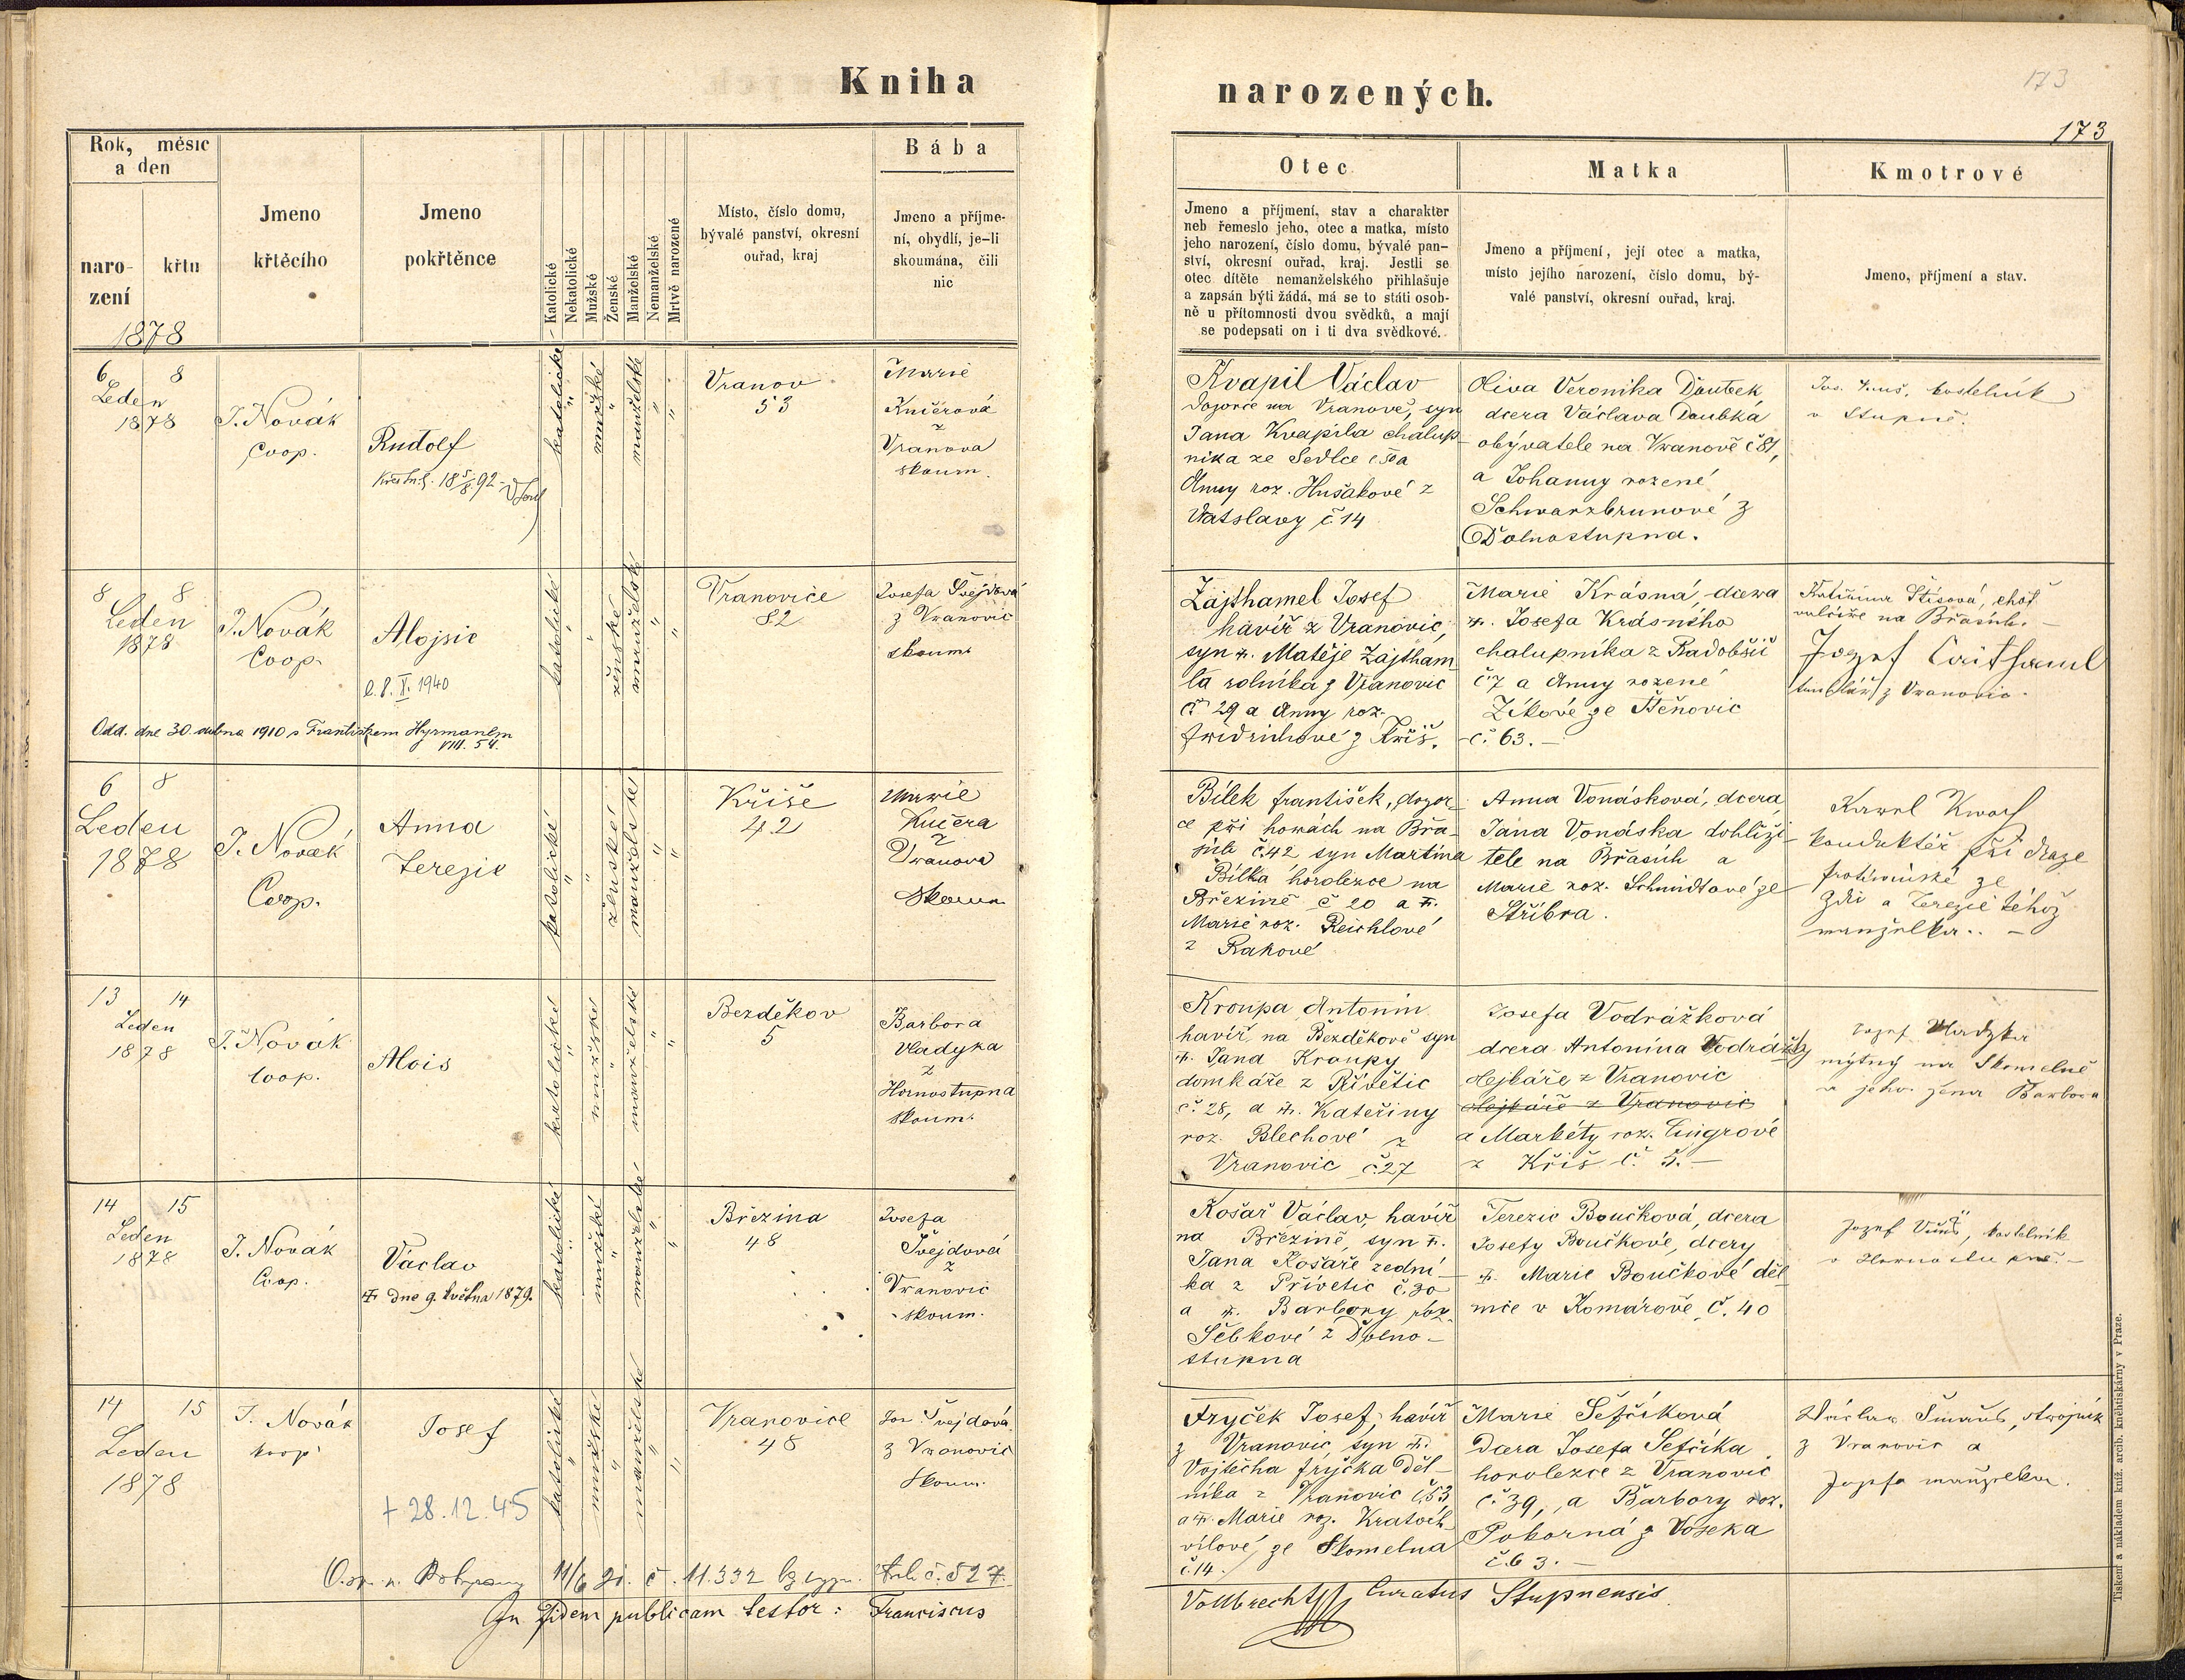 Kniha
narozených.
173
173
Rok, měsíc a den
naro-
zení
křtu
1878
Jmeno
křtěcího
Jmeno
pokřtěnce
Katolické
Nekatolické
Mužské
Ženské
Manželské
Nemanželské
Mrtvě narozené
Místo, číslo domu,
bývalé panství, okresní
ouřad, kraj
Bába
Jmeno a příjme-
ní, obydlí, je-li
skoumána, čili
nic
Otec
Jmeno a příjmení, stav a charakter
neb řemeslo jeho, otec a matka, místo
jeho narození, číslo domu, bývalé pan-
ství, okresní ouřad, kraj. Jestli se
otec dítěte nemanželského přihlašuje
a zapsán býti žádá, má se to státi osob-
ně u přítomnosti dvou svědků, a mají
se podepsati on i ti dva svědkové.
Matka
Jmeno a příjmení, její otec a matka,
místo jejího narození, číslo domu, bý-
valé panství, okresní ouřad, kraj.
Kmotrové
Jmeno, příjmení a stav.
6 8
Leden
1878
J. Novák
Coop.
Rudolf
katolické
mužské
manželské
Vranov
53
Marie
Kučerová
z
Vranova
skoum.
Kvapil Václav
Dozorce na Vranově, syn
Jana Kvapila chalup-
nika ze Sedlce č 50 a
Anny roz. Hušákové z
Vatslavy č. 14
Oliva Veronika Doubek
dcera Václava Doubka
obývatele na Vranově č 81,
a Johanny rozené
Schwarzbrunové z
Dolnostupna.
kostelník
v Stupně.
8 8
Leden
1878
J. Novák
Coop.
Alojsie
8. X. 1940
Odd. dne 30 dubna 1910 s Františkem Hyrmanem
VIII. 54.
katolické
ženské
manželské
Vranovice
82
Josefa Švejdová
z Vranovic
skoum.
Zajthamel Josef
havíř z Vranovic,
syn Matěje Zajtham
la rolníka z Vranovic
č 29 a Anny roz.
Fridrichové z Kříš.
Marie Krásná, dcera
Josefa Krásného
chalupníka z Radobšic
č. 7 a Anny rozené
Zíkové ze Štěnovic
č. 63.-
Kateřina Štisová, choť
na Břasích.
Jozef Cajthaml
truhlář z Vranovic.
6 8
Leden
1878
J. Novák
Coop.
Anna
Terezie
katolické
ženské
manželské
Kříše
42
Marie
Kučera
z
Vranova
Skoum
Bílek František, dozor-
ce při horách na Břa-
sích č. 42 syn Martina
Bílka horolezce na
Březině č 20 a
Marie roz. Reichlové
z Rakové
Anna Vonásková, dcera
Jana Vonáska dohlíži-
tele na Břasích a
Marie roz. Schmidtové ze
Stříbra.
Karel
konduktér při draze
protivínské ze
Zdi a Terezie téhož
manželka. -
13 14
Leden
1878
J. Novák
Coop.
Alois
katolické
mužské
manželské
Bezděkov
5
Barbora
Vladyka
z
Hornostupna
skoum.
Kroupa Antonín
havíř na Bezděkově syn
Jana Kroupy
domkáře z Přívětic
č. 28, a Kateřiny
roz. Blechové z
Vranovic č. 27
Josefa Vodrážková
dcera Antonína Vodrážky
olejkáře z Vranovic
olejkáře z Vranovic
a Markéty roz. Cingrové
z Kříš č. 5.-
Jozef Vladyka
mýtný na Skomelně
a jeho žena Barbora
14 15
Leden
1878
J. Novák
Coop.
Václav
dne 9. května 1879.
katolické
mužské
manželské
Březina
48
Josefa
Švejdová
z
Vranovic
skoum.
Košař Václav, havíř
na Březině, syn
Jana Košaře zední-
ka z Přívetic č. 30
a Barbory roz.
Sebkové z Dolno-
stupna
Terezie Boučková, dcera
Josefy Boučkové, dcery
Marie Boučkové děl-
nice v Komárově č. 40
Jozef kostelník
v Hornostupně.-
14 15
Leden
1878
J. Novák
koop.
Josef
+ 28.12.45
katolické
mužské
manželské
Vranovice
48
Jos. Švejdová
z Vranovic
Skoum.
Fryček Josef, havíř
z Vranovic, syn
Vojtěcha Fryčka děl-
níka z Vranovic č. 53
a Marie roz. Kratoch
vílové, ze Skomelna
č. 14.
Marie Šefčíková
Dcera Josefa Šefčíka
horolezce z Vranovic
č. 39, a Barbory roz.
Pokorná z Voseka
č. 63.-
Václav Šmaus, strojník
z Vranovic a
Jozefa manželka.
11/6 č. 11.332 č. 527.
In fidem publicam testor: Franciscus
Vollbrecht Curatus Stupnensis.
Tiskem a nákladem kníž. arcib. knihtiskárny v Praze.